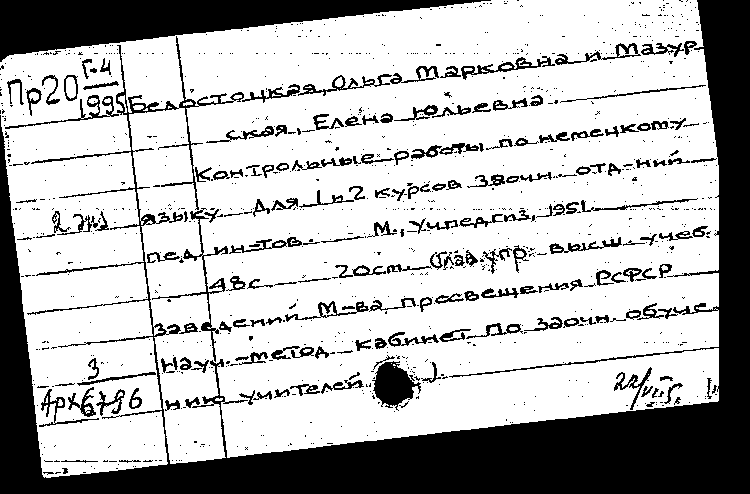 Пр20 Г-4
1995
Белостоцкая, Ольга Марковна и Мазур
ская, Елена Юльевна.
Контрольные работы по немецкому
2 экз
языку для 1 и 2 курсов заочн. отд-ний
пед. ин-тов. М., Учпедгиз, 1951.
48с 20см. (Глав. упр. высш. учеб.
заведений М-ва просвещения РСФСР
Науч.-метод. кабинет по заочн. обуче
3
Арх6796
нию учителей )